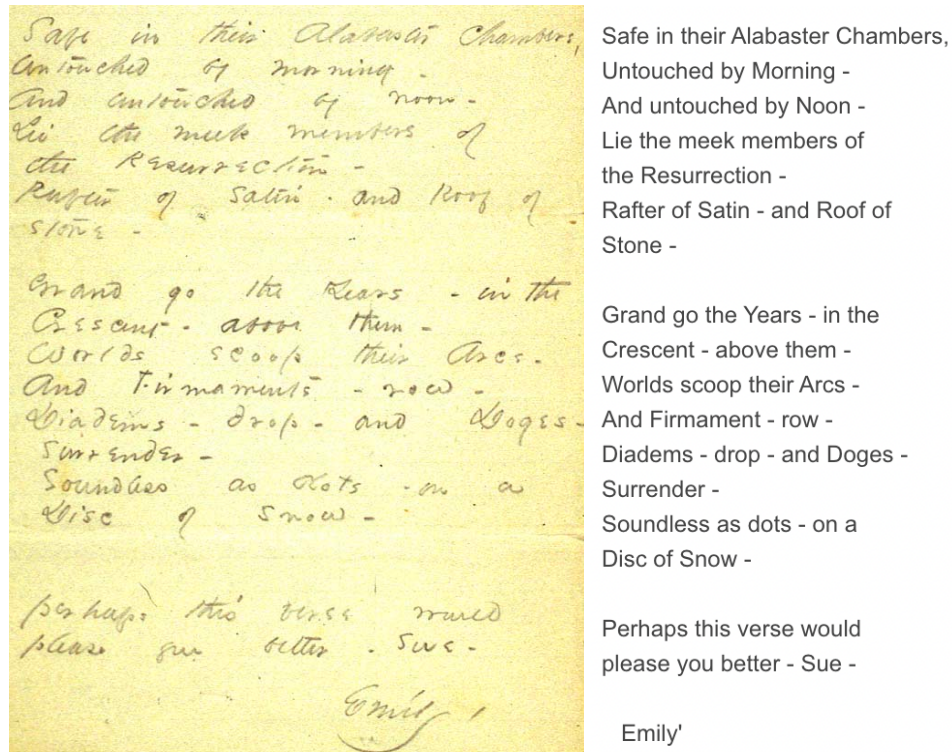 Safe in their Alabaster Chambers,
Untouched by morning -
And untouched by noon -
Lie the meek members of
the Resurrection -
Rafter of Satin - and Roof of
Stone -
Grand go the Years - in the
Crescent - above them -
Worlds scoop their Arcs -
And Firmaments - row -
Diadems - drop - and Doges -
Surrender -
Soundless as dots - on a
Disc of Snow -
Perhaps this verse would
please you better - Sue -
Emily
Safe in their Alabaster Chambers,
Untouched by Morning -
And untouched by Noon -
Lie the meek members of
the Resurrection -
Rafter of Satin - and Roof of
Stone -
Grand go the Years - in the
Crescent - above them -
Worlds scoop their Arcs -
And Firmament - row -
Diadems - drop - and Doges -
Surrender -
Soundless as dots - on a
Disc of Snow -
Perhaps this verse would
please you better - Sue -
Emily'